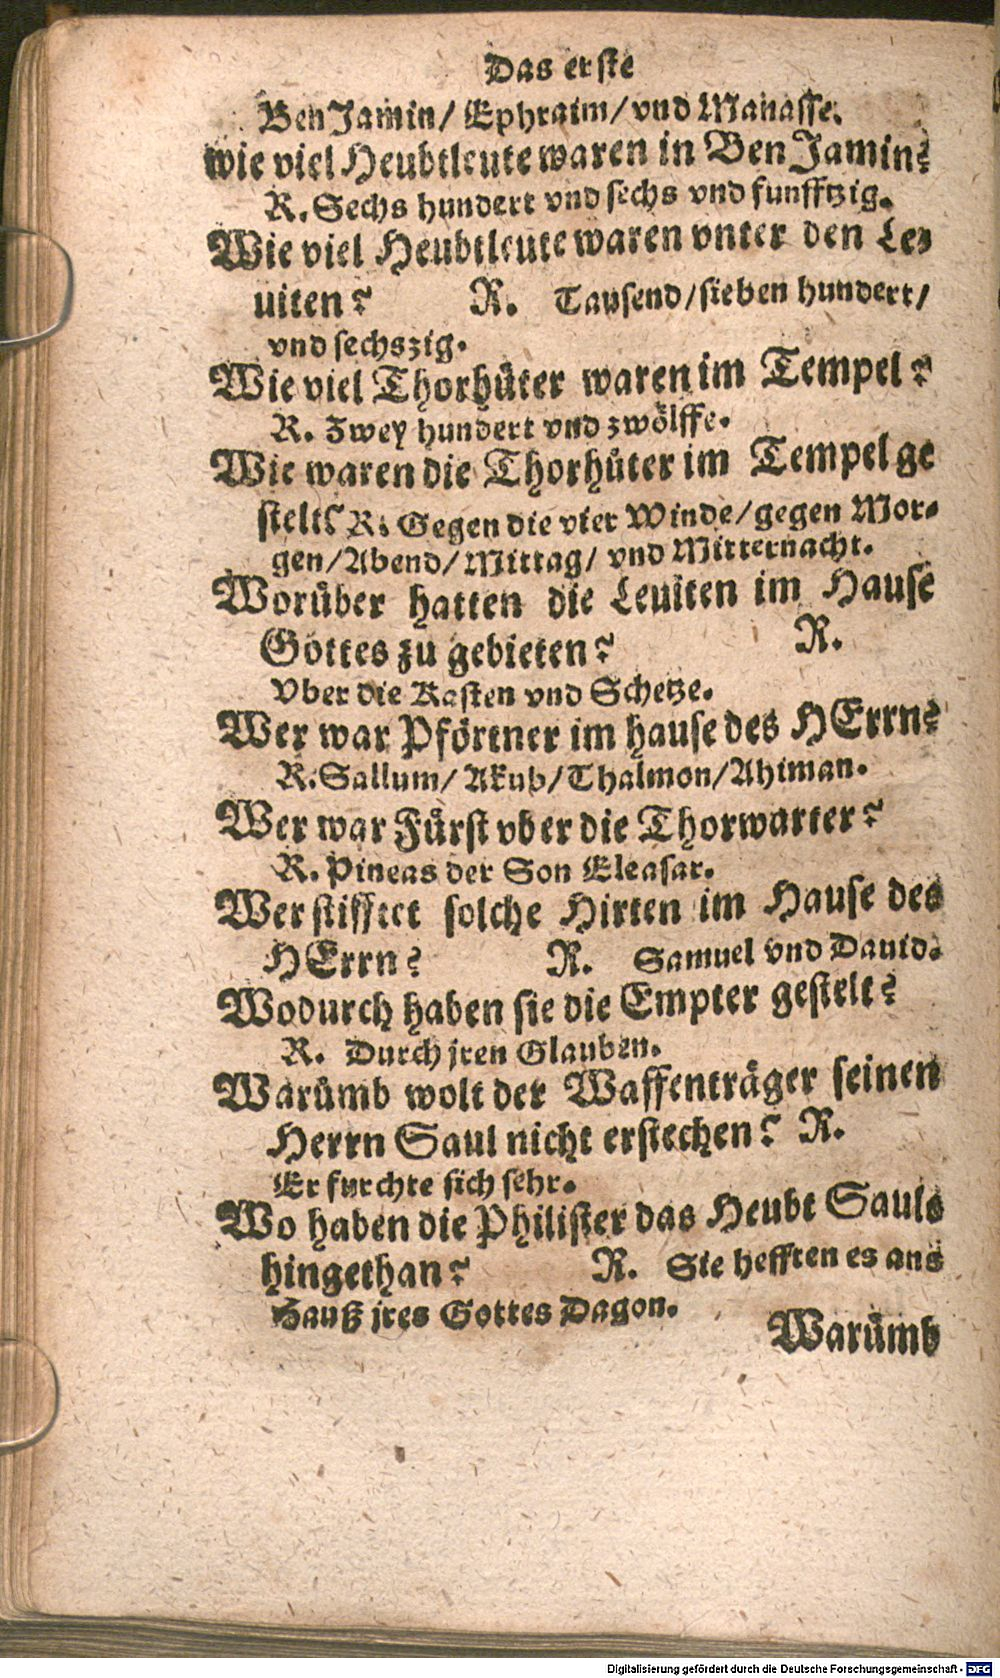 Das erste
BenJamin/ Ephraim/ vnd Manasse.
wie viel Heubtleute waren in BenJamin?
R. Sechs hundert vnd sechs vnd funfftzig.
Wie viel Heubtleute waren vnter den Le-
uiten? R. Tausend/ sieben hundert/
vnd sechszig.
Wie viel Thorhüter waren im Tempel?
R. Zwey hundert vnd zwölffe.
Wie waren die Thorhüter im Tempel ge
stelt? R. Gegen die vier Winde/ gegen Mor-
gen/ Abend/ Mittag/ vnd Mitternacht.
Worüber hatten die Leuiten im Hause
Gottes zu gebieten? R.
Vber die Kasten vnd Schetze.
Wer war Pförtner im hause des HErrn?
R. Sallum/ Akub/ Thalmon/ Ahiman.
Wer war Fürst vber die Thorwarter?
R. Pineas der Son Eleasar.
Wer stifftet solche Hirten im Hause des
HErrn? R. Samuel vnd Dauid.
Wodurch haben sie die Empter gestelt?
R. Durch jren Glauben.
Warümb wolt der Waffenträger seinen
Herrn Saul nicht erstechen? R.
Er furchte sich sehr.
Wo haben die Philister das Heubt Sauls
hingethan? R. Sie hefften es ans
Hauß jres Gottes Dagon.
Warümb
Digitalisierung gefördert durch die Deutsche Forschungsgemeinschaft - DFG